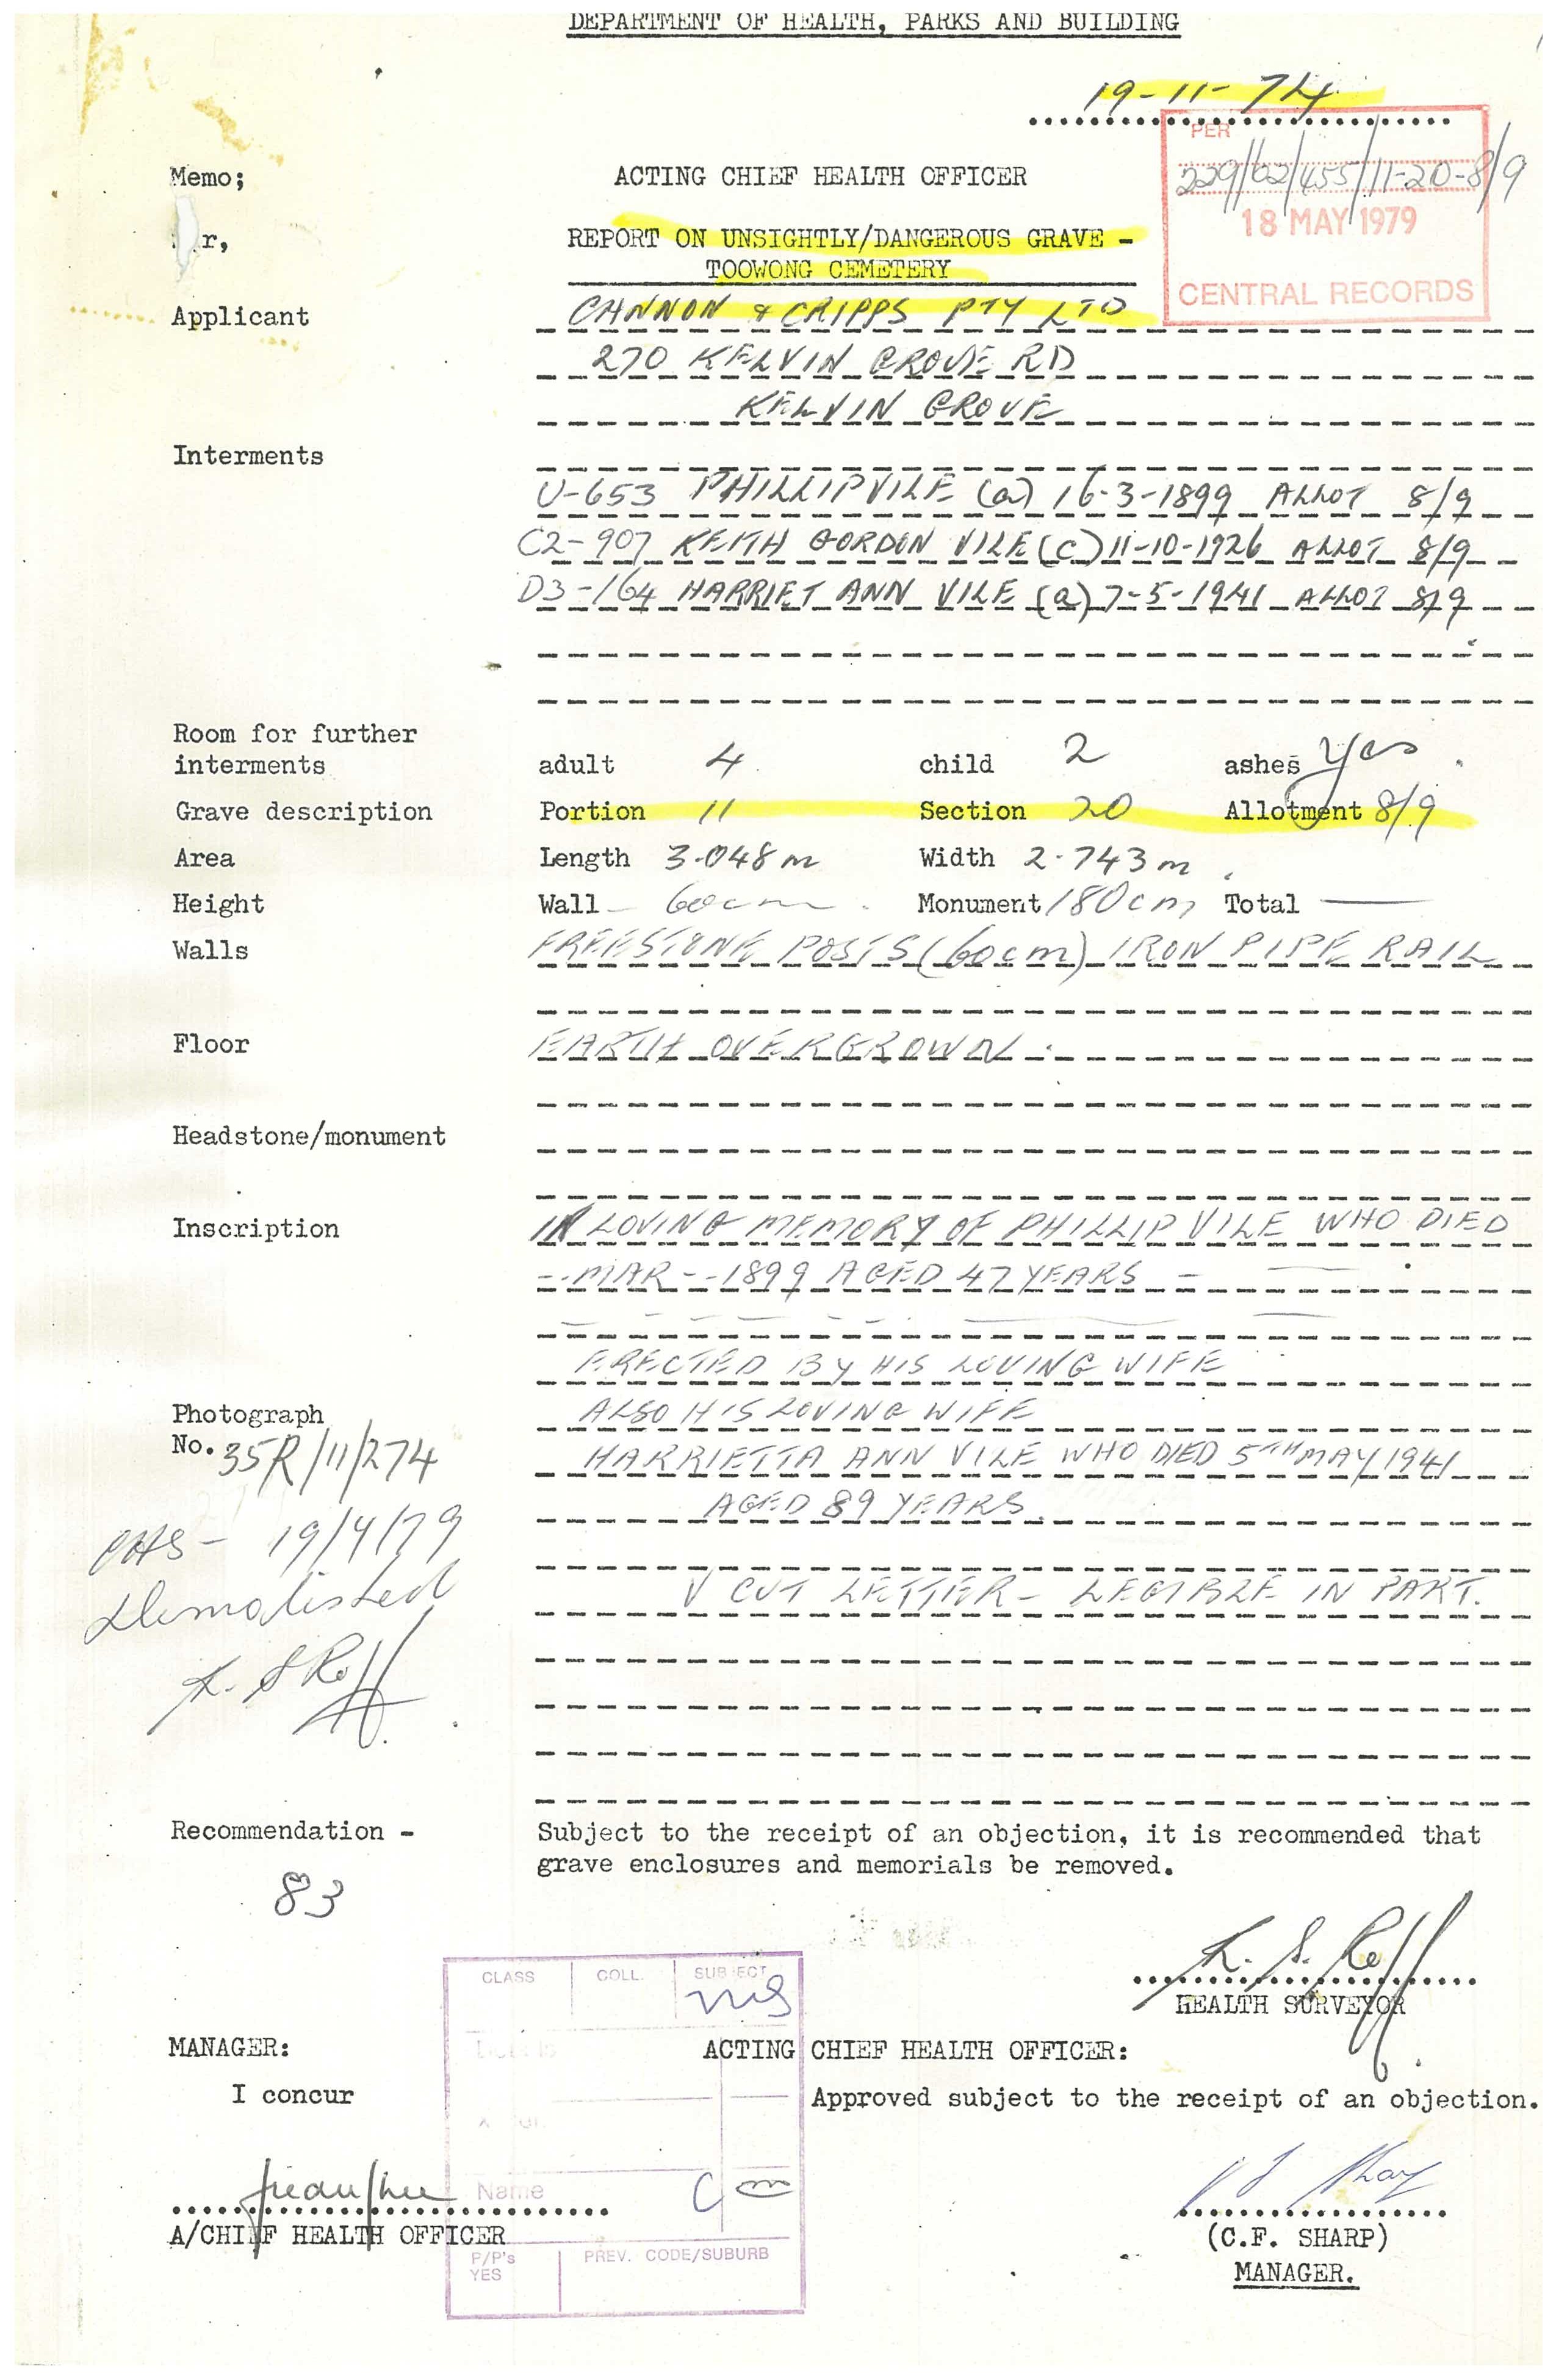 DEPARTMENT OF HEALTH, PARKS AND BUILDING
19-11-74
PER
229/62/455/11-20-8/9
18 MAY 1979
CENTRAL RECORDS
Memo; ACTING CHIEF HEALTH OFFICER
r,
REPORT ON UNSIGHTLY/DANGEROUS GRAVE -
TOOWONG CEMETERY
Applicant CANNON & CRIPPS PTY LTD
270 KELVIN GROVE RD
KELVIN GROVE
Interments
U-653 PHILLIP VILE (a) 16-3-1899 ALLOT 8/9
C2-907 KEITH GORDON VILE (c) 11-10-1926 ALLOT 8/9
D3-164 HARRIET ANN VILE (a) 7-5-1941 ALLOT 8/9
Room for further
interments adult 4 child 2 ashes Yes
Grave description Portion 11 Section 20 Allotment 8/9
Area Length 3.048m Width 2.743m
Height Wall 60cm Monument 180cm Total —
Walls FREESTONE POSTS (60cm) IRON PIPE RAIL
Floor EARTH OVERGROWN.
Headstone/monument
Inscription IN LOVING MEMORY OF PHILLIP VILE WHO DIED
-- MAR -- 1899 AGED 47 YEARS -
ERECTED BY HIS LOVING WIFE
ALSO HIS LOVING WIFE
HARRIETTA ANN VILE WHO DIED 5TH MAY 1941
AGED 89 YEARS.
V CUT LETTER - LEGIBLE IN PART.
Photograph
No. 35R/11/274
19/4/79
Demolished
Recommendation - Subject to the receipt of an objection, it is recommended that
grave enclosures and memorials be removed.
83
HEALTH SURVEYOR
CLASS COLL. SUBJECT
Name
P/P's PREV. CODE/SUBURB
YES
MANAGER: ACTING CHIEF HEALTH OFFICER:
I concur Approved subject to the receipt of an objection.
A/CHIEF HEALTH OFFICER
(C.F. SHARP)
MANAGER.